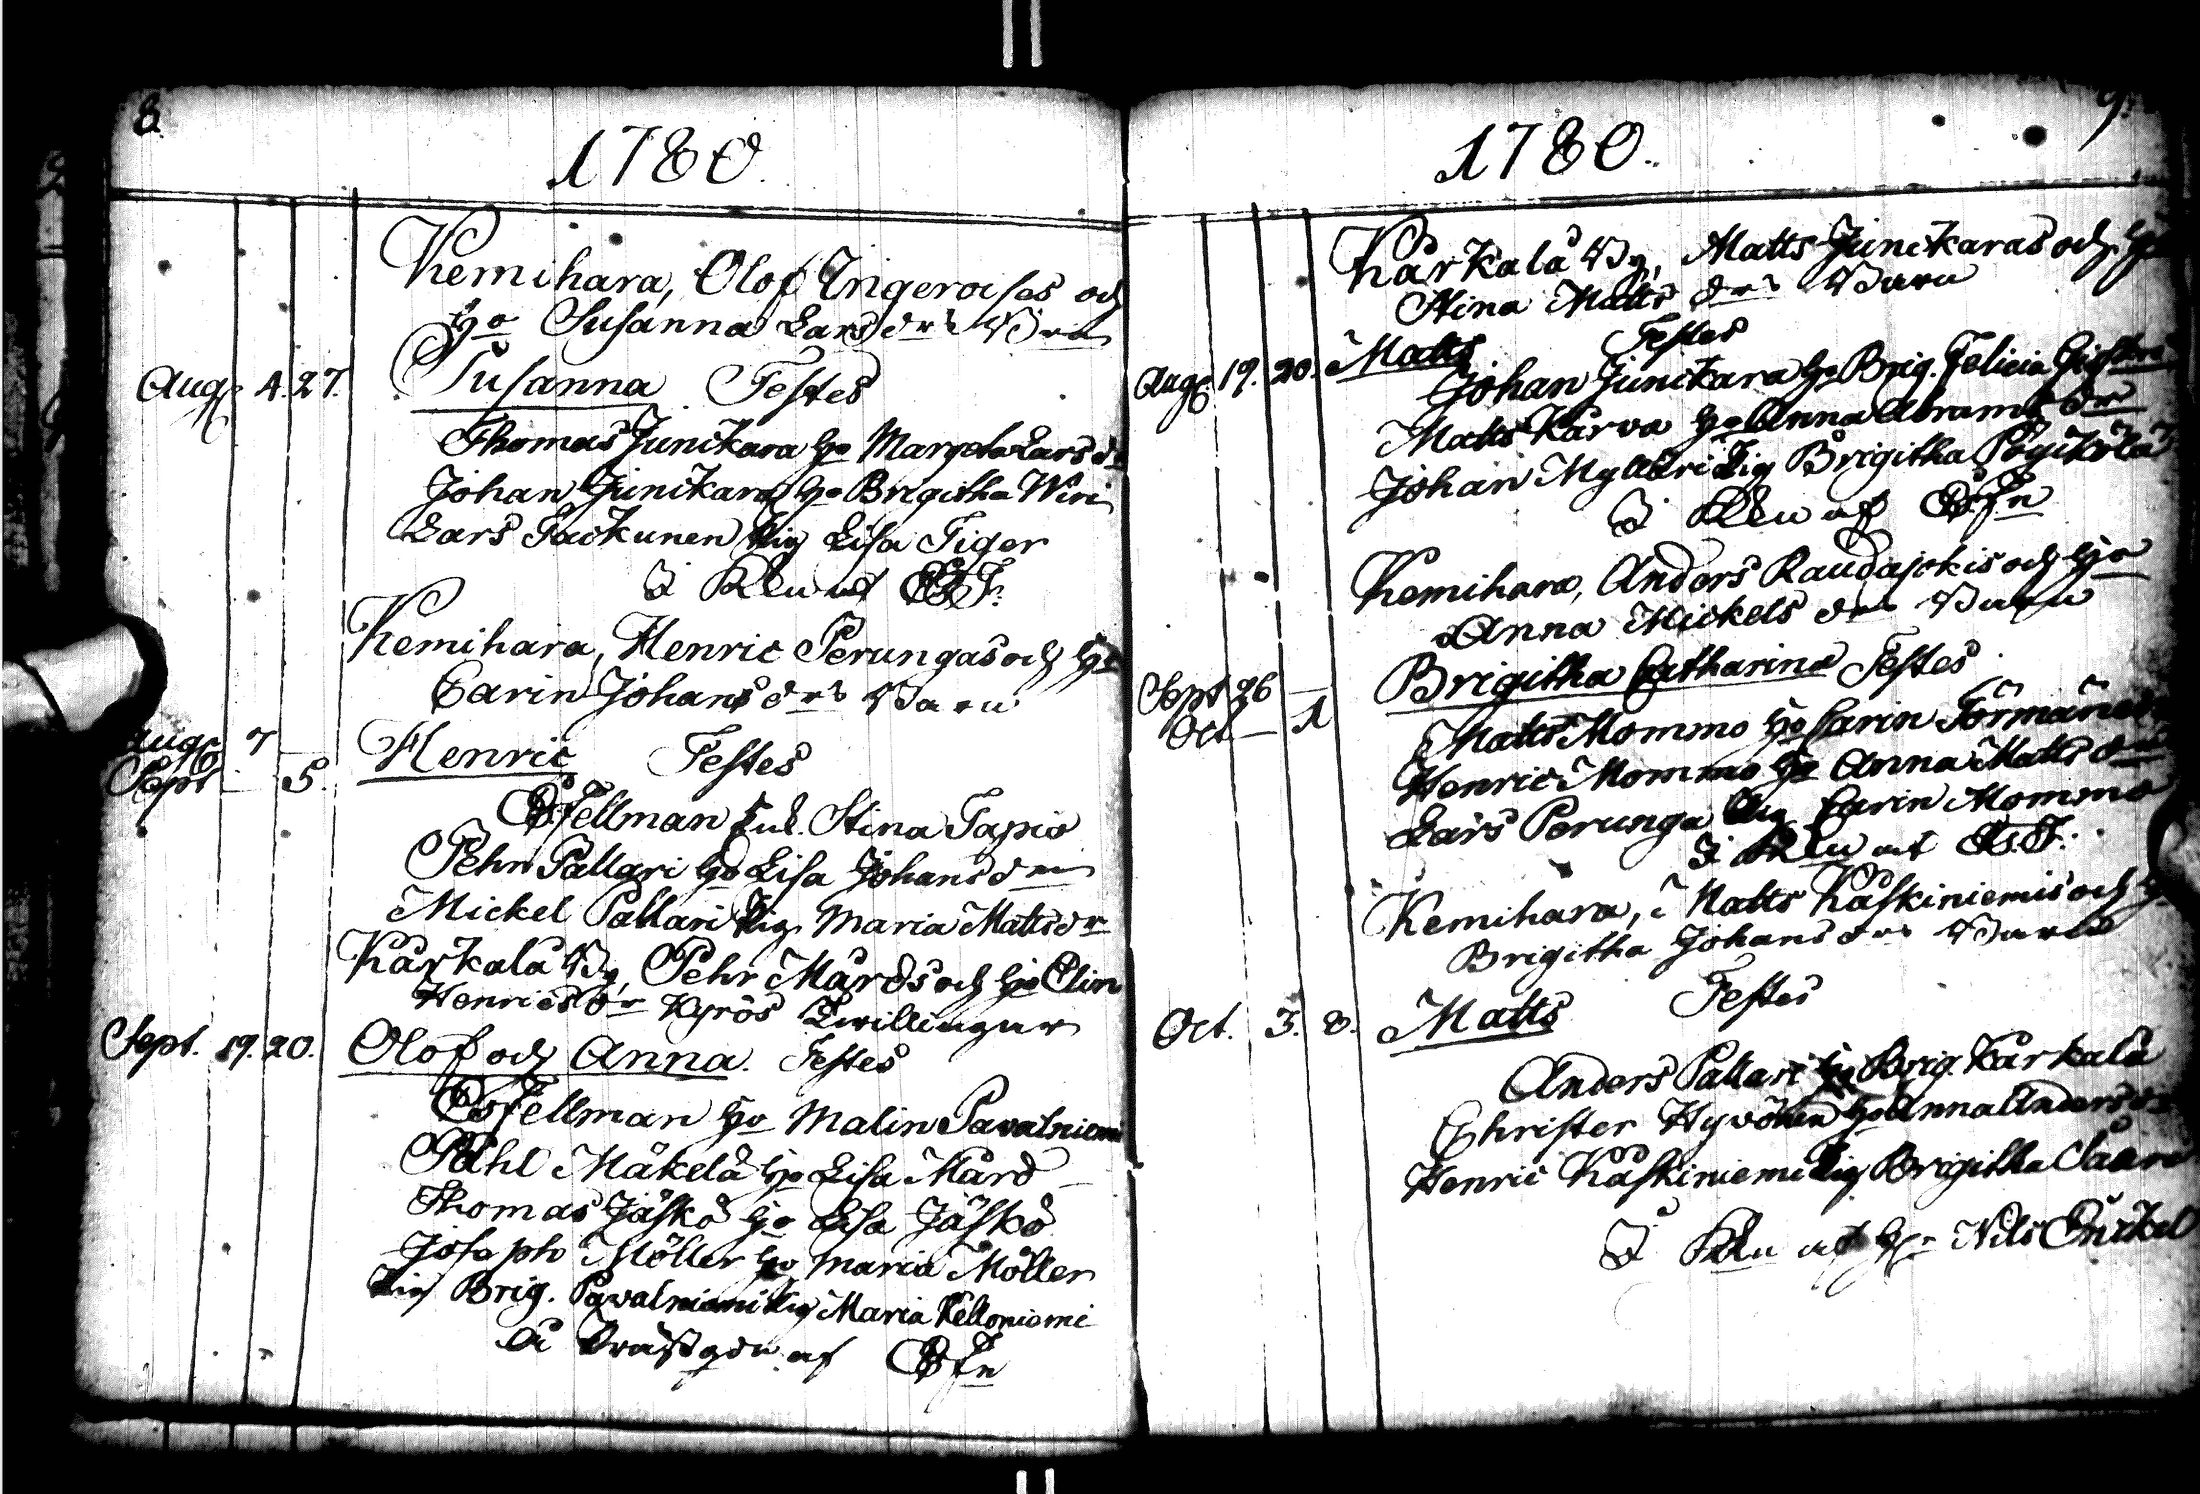 8.
1780.
Kemihara, Olof Ingeroises och
Ho Susanna Larsdrs Barn
Aug. 4. 27. Susanna Testes
Thomas Junikara Ho Margeta Larsdr
Johan Junikara Ho Brigitha Wiri
Lars Tackunen Pig Lisa Tiger
I Klen af EF.
Kemihara, Henric Perungas och Ho
Carin Johansdrs Barn
Aug. 7
Sept — 5. Henric Testes
EFellman Jul. Stina Tapio
Pehr Pallari Ho Lisa Johansdr
Mickel Pallari Pig. Maria Mattsdr
Kärkälä By, Pehr Mårds och Ho Elin
Henricsdr Kyrös Twillingar
Sept. 19. 20. Olof och Anna. Testes
EsFellman Ho Malin Pavalniemi
Påhl Mäkelä Ho Lisa Mård
Thomas Jäskö Ho Lisa Jäskö
Joseph Möller Ho Maria Möller
Pig Brig. Pavalniemi Pig Maria Kelloniemi
af EFn
9.
1780.
Kärkälä By, Matts Junikaras och Ho
Stina Matts drs Barn
Aug. 19. 20. Matts Testes
Johan Junikara Ho Brig. Felicia
Matts Kärva Ho Anna Abrams dr
Johan Mylläri Pig Brigitha
I Klen af EFn
Kemihara, Anders Raudajokis och Ho
Anna Mickels drs Barn
Sept 26 — Brigitha Catharina Testes
Oct — 1
Matts Mommo Ho Carin Törmänen
Henric Mommo Ho Anna Matts dr
Lars Perunga Pig Carin Mommo
I Klen af E.F.
Kemihara, Matts Käskiniemis och Ho
Brigitha Johans drs Barn
Oct. 3. 8. Matts Testes
Anders Pallari Ho Brig. Kärkälä
Christer Hyvönen Ho Anna Anders dr
Henric Käskiniemi Pig Brigitha Saara
I Klen af Hr Nils Enckel